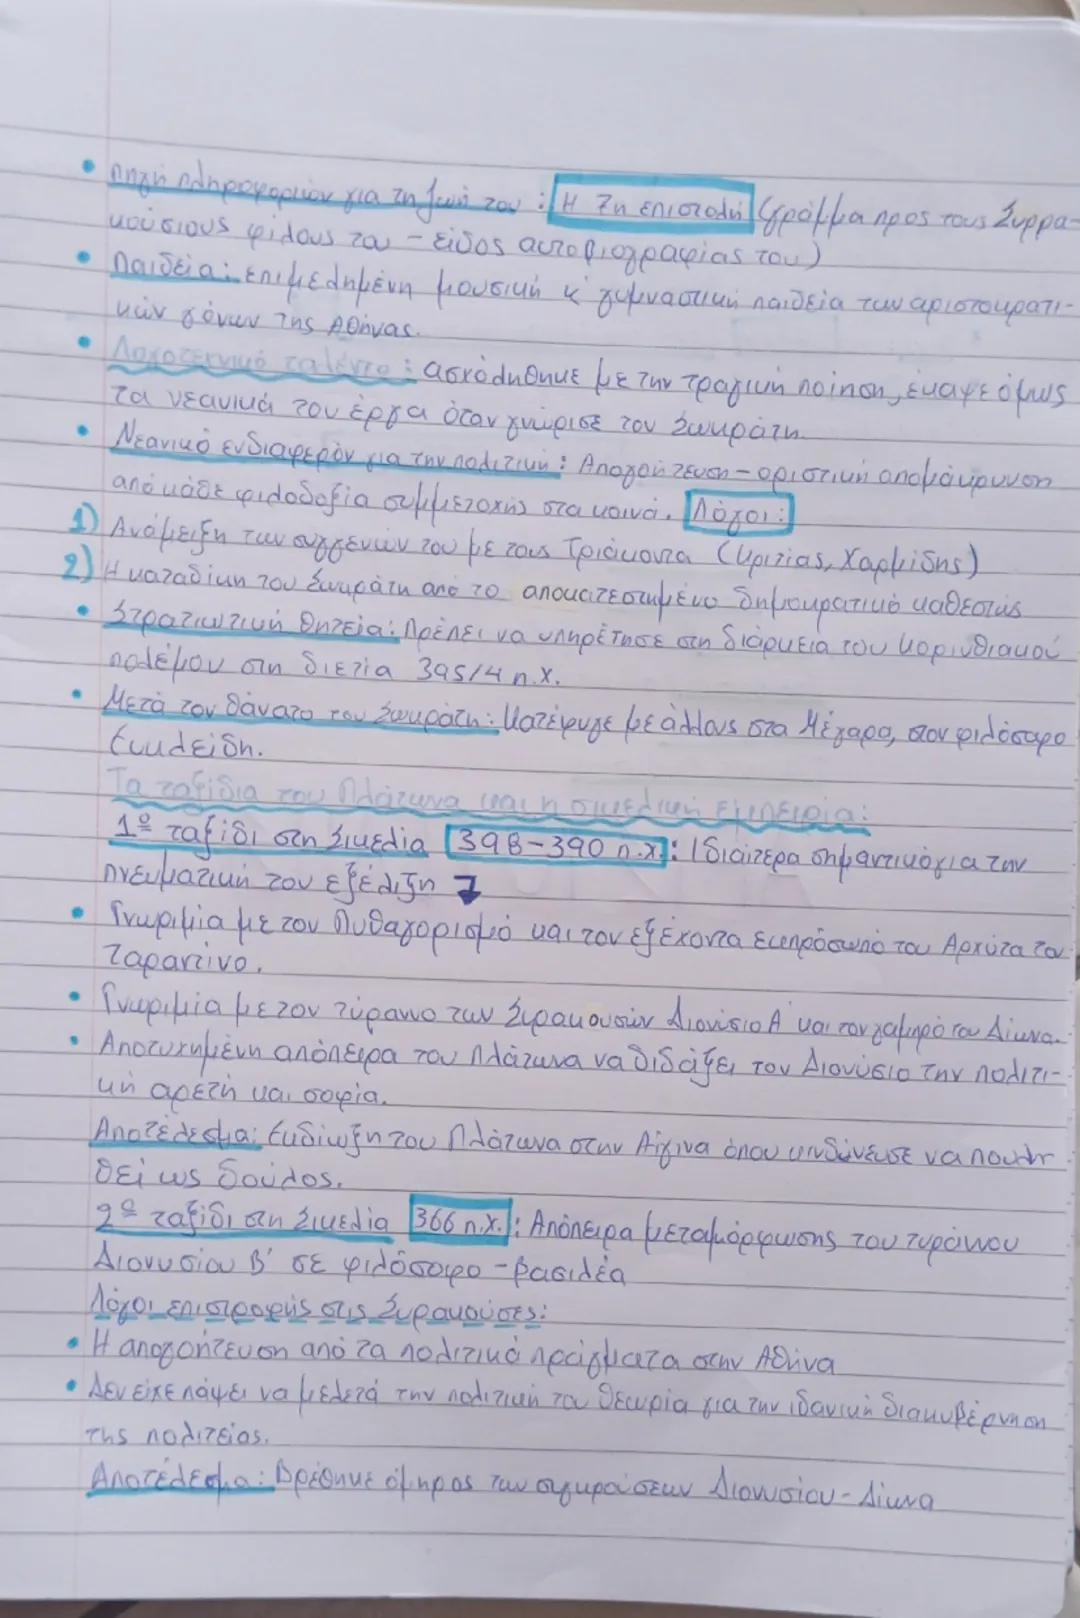 • Πηγή πληροφοριών για τη ζωή του : Η 7η επιστολή (γράμμα προς τους Συρρα-
κούσιους φίλους του - είδος αυτοβιογραφίας του)
• Παιδεία: επιμελημένη μουσική κ' γυμναστική παιδεία των αριστοκρατι-
κών γόνων της Αθήνας.
• Λογοτεχνικό ταλέντο : ασχολήθηκε με την τραγική ποίηση, έκαψε όμως
τα νεανικά του έργα όταν γνώρισε τον Σωκράτη
• Νεανικό ενδιαφερόν για την πολιτική : Απογοήτευση - οριστική απομάκρυνση
από κάθε φιλοδοξία συμμετοχής στα κοινά. Λόγοι:
1) Ανάμειξη των συγγενών του με τους Τριάκοντα (Κριτίας, Χαρμίδης)
2) Η καταδίκη του Σωκράτη από το αποκατεστημένο δημοκρατικό καθεστώς
• Στρατιωτική Θητεία: Πρέπει να υπηρέτησε στη διάρκεια του Κορινθιακού
πολέμου στη διετία 395/4 π.Χ.
• Μετά τον θάνατο του Σωκράτη: Κατέφυγε με άλλους στα Μέγαρα, στον φιλόσοφο
Ευκλείδη.
Τα ταξίδια του Πλάτωνα και η σικελική εμπειρία:
1º ταξίδι στη Σικελία 398-390 π.Χ. : Ιδιαίτερα σημαντικό για την
πνευματική του εξέλιξη ↴
• Γνωριμία με τον Πυθαγορισμό και τον εξέχοντα εκπρόσωπό του Αρχύτα τον
Ταραντίνο.
• Γνωριμία με τον τύραννο των Συρακουσών Διονύσιο Α' και τον γαμπρό του Δίωνα.
• Αποτυχημένη απόπειρα του Πλάτωνα να διδάξει τον Διονύσιο την πολιτι-
κή αρετή και σοφία.
Αποτέλεσμα: Εκδίωξη του Πλάτωνα στην Αίγινα όπου κινδύνευσε να πουλη-
θεί ως δούλος.
2º ταξίδι στη Σικελία 366 π.Χ. : Απόπειρα μεταμόρφωσης του τυράννου
Διονυσίου Β' σε φιλόσοφο - βασιλέα
Λόγοι επιστροφής στις Συρακούσες:
• Η απογοήτευση από τα πολιτικά πράγματα στην Αθήνα
• Δεν είχε πάψει να μελετά την πολιτική του θεωρία για την ιδανική διακυβέρνηση
της πολιτείας.
Αποτέλεσμα: Βρέθηκε όμηρος των συγκρούσεων Διονυσίου - Δίωνα